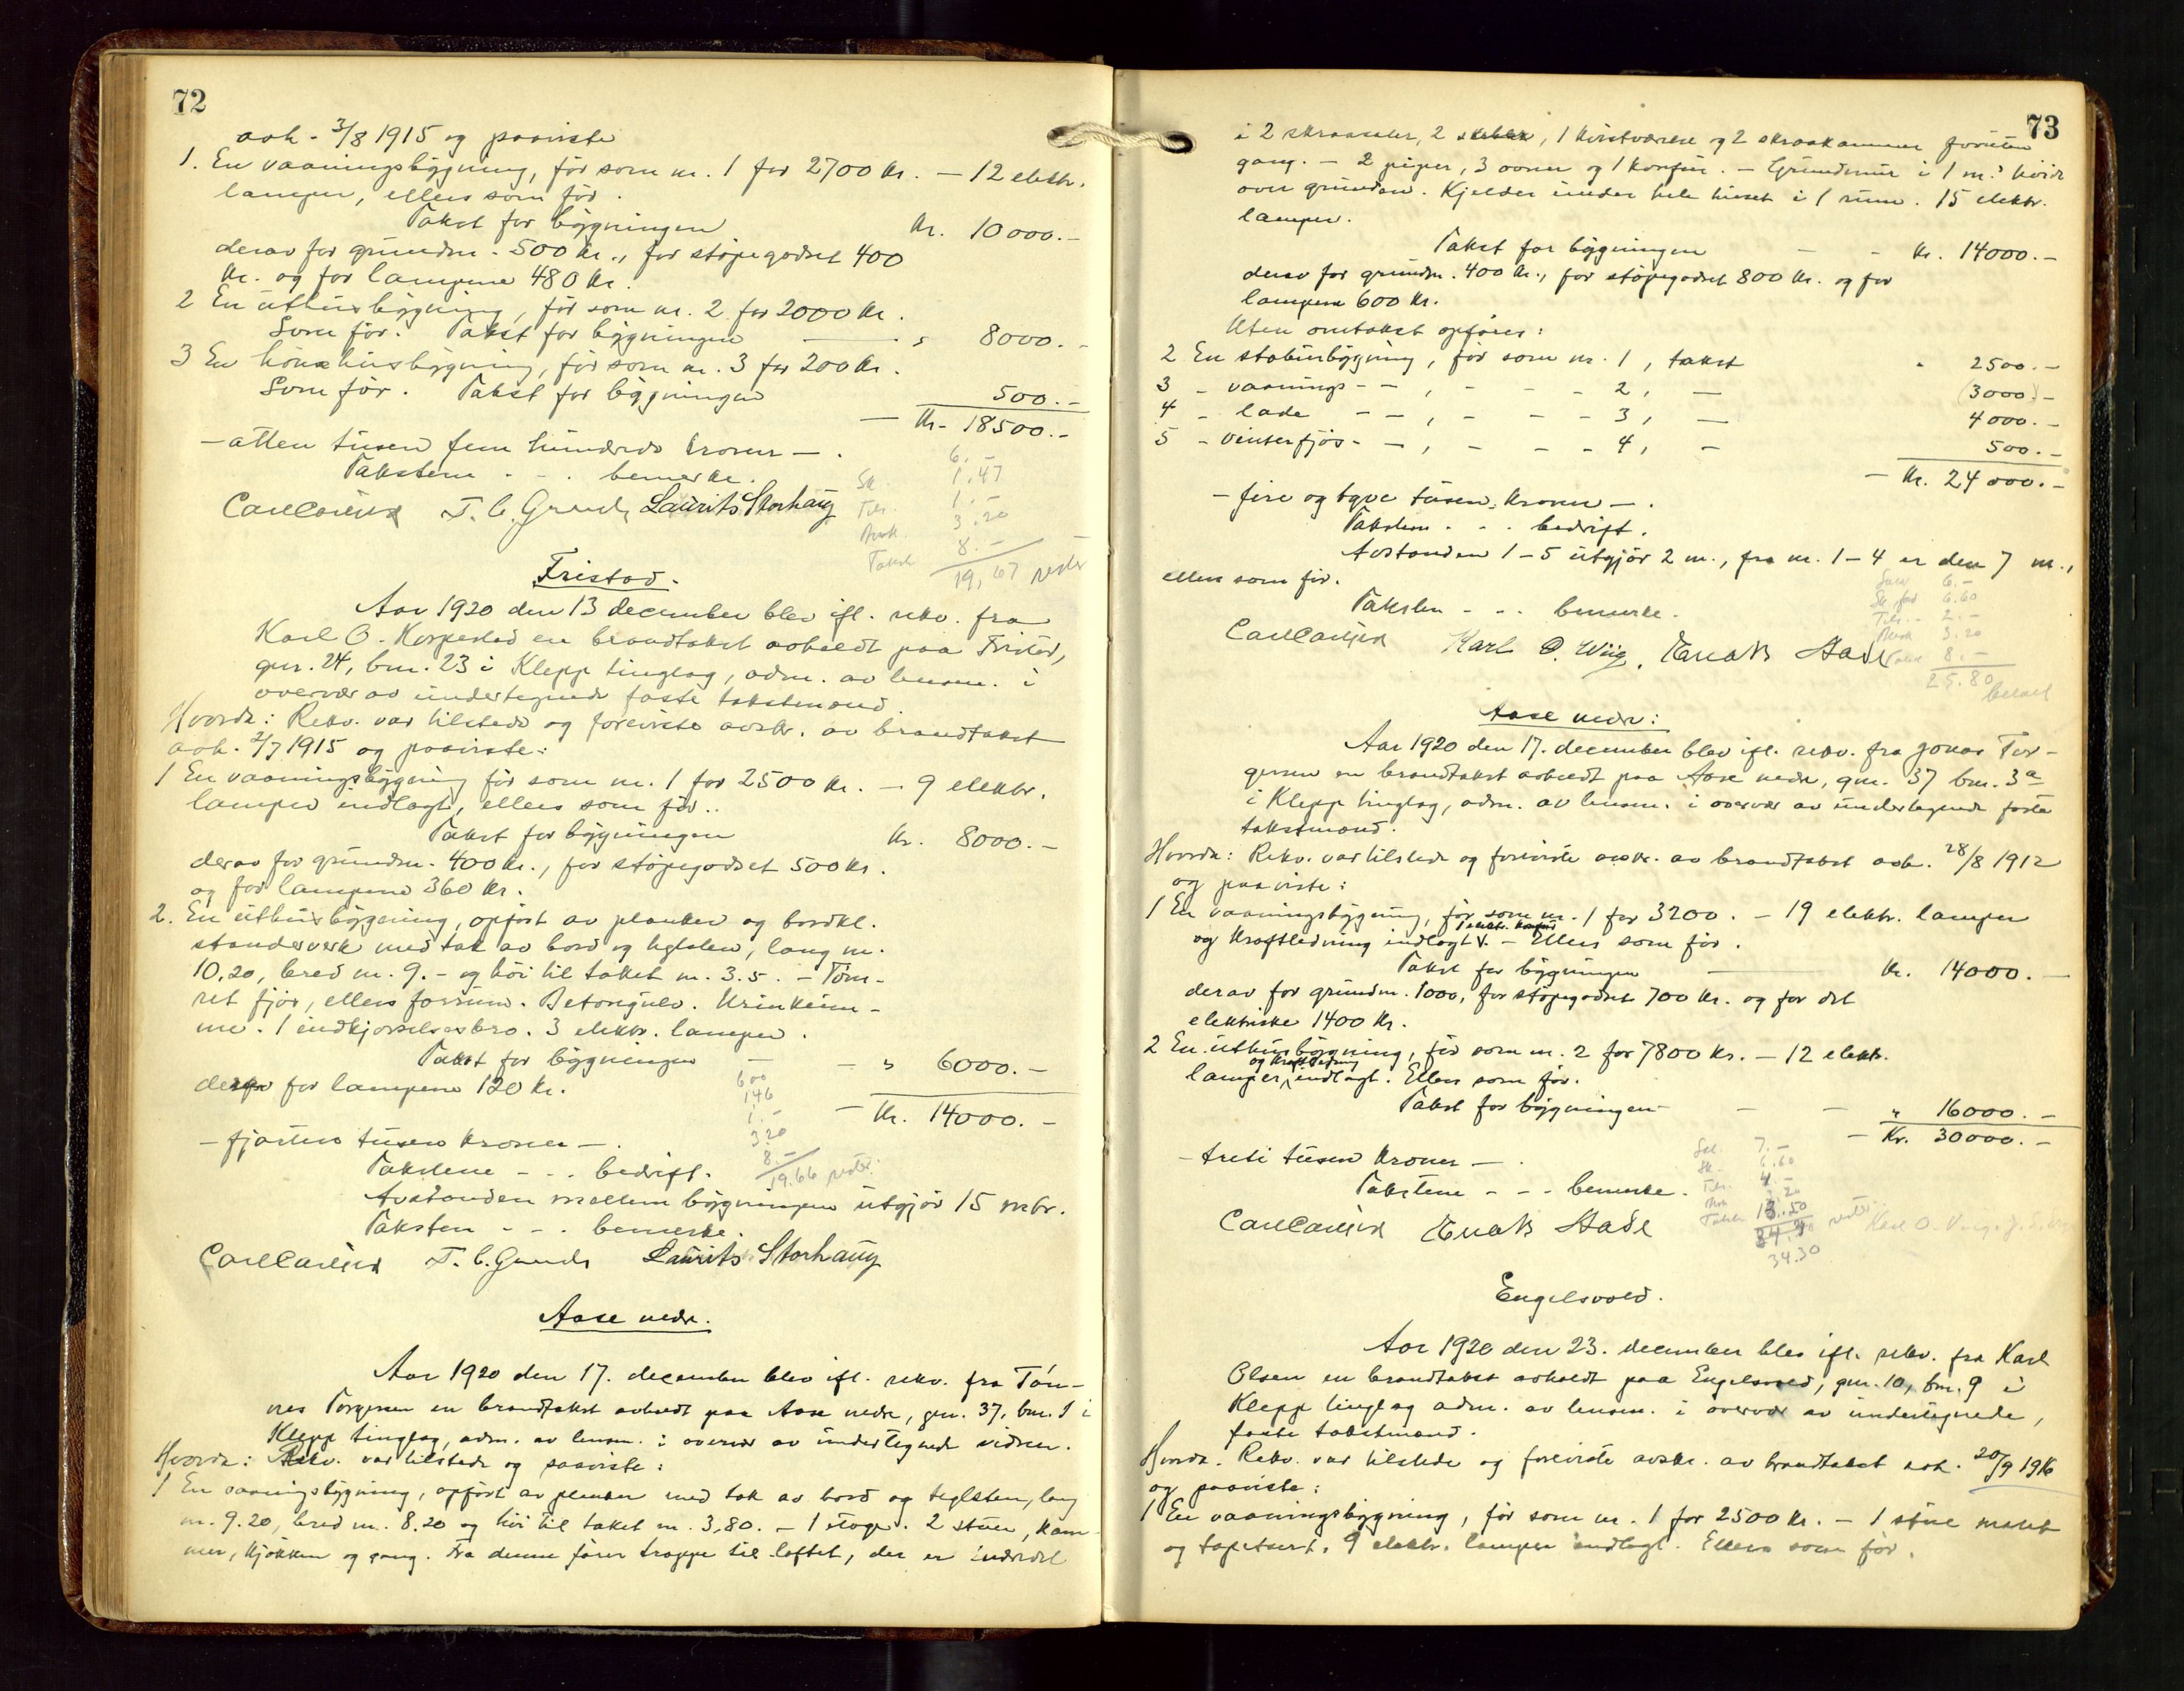 72
avh. 3/8 1915 og paaviste
1. En vaaningsbygning, før som nr. 1 for 2700 kr. — 12 elektr.
lamper, ellers som før.
Takst for bygningen kr. 10000.-
derav for grundm. 500 kr., for støpegodset 400
kr. og for lampene 480 kr.
2 En uthusbygning, før som nr. 2 for 2000 kr.
Som før. Takst for bygningen — " 8000.-
3 En hönsehusbygning, før som nr. 3 for 200 kr.
Som før. Takst for bygningen 500.-
— Kr. 18500.-
— atten tusen fem hundrede kroner —.
Takstene - - . bemerke.
6.-
Sk. 1.47
Tilr. 1.-
Avsk. 3.20
Takst 8.-
19,67
Carl Carlsen T. C. Grude Laurits Storhaug
Fristad.
Aar 1920 den 13 december blev ifl. rekv. fra
Karl O. Korpestad en brandtakst avholdt paa Fristad,
gnr. 24, bnr. 23 i Klepp tinglag, adm. av lensm. i
overvær av undertegnede faste takstmænd.
Hvorda: Rekv. var tilstede og foreviste avskr. av brandtakst
avh. 2/7 1915 og paaviste:
1 En vaaningsbygning før som nr. 1 for 2500 kr. — 9 elektr.
lamper indlagt, ellers som før.
Takst for bygningen kr. 8000.—
derav for grundm. 400 kr., for støpegodset 500 kr.
og for lampene 360 kr.
2. En uthusbygning, opført av planker og bordkl.
standerverk med tak av bord og teglsten, lang m.
10,20, bred m. 9.- og høi til taket m. 3.5. — Töm-
ret fjös, ellers forrum. Betongulv. Urinkum-
me. 1 indkjørselsbro. 3 elektr. lamper.
Takst for bygningen — — " 6000.—
derav for lampene 120 kr.
— Kr. 14000.—
600
1.46
1.-
3.20
8.-
19.66
— fjorten tusen kroner —.
Takstene - - . bedrift.
Avstanden mellem bygningene utgjør 15 mtr.
Taksten - - . bemerke.
Carl Carlsen T. C. Grude Laurits Storhaug
Aase nedr.
Aar 1920 den 17. december blev ifl. rekv. fra Tön-
nes Torgersen en brandtakst avholdt paa Aase nedre, gnr. 37, bnr. 1 i
Klepp tinglag, adm. av lensm. i overvær av undertegnede vidner.
Hvorda: Rekv. var tilstede og paaviste:
1 En vaaningsbygning, opført av planker med tak av bord og teglsten, lang
m. 9.20, bred m. 8.20 og høi til taket m. 3,80. — 1 etage. 2 stuer, kam-
mer, kjøkken og gang. Fra denne fører trappe til loftet, der er inddelt
73
i 2 skraasaler, 2 , 1 kvistværelse og 2 skraakammer foruten
gang. — 2 piper, 3 ovner og 1 komfur. — Grundmur i 1 m.s høide
over grunden. Kjelder under hele huset i 1 rum. 15 elektr.
lamper.
Takst for bygningen — - kr. 14000.—
derav for grundm. 400 kr., for støpegodset 800 kr. og for
lampene 600 kr.
Uten omtakst opføres:
2 En stabursbygning, før som nr. 1, takst " 2500.—
3 - vaanings- — , - - - 2, — (3000.)-
4 - lade - — , - - - 3, — 4000.—
5 - vinterfjös- — , - - - 4, — 500.—
— Kr. 24000.—
— fire og tyve tusen kroner —.
Taksten - - . bedrift.
Avstanden 1-5 utgjör 2 m., fra nr. 1-4 er den 7 m.,
ellers som før.
Taksten - - . bemerke.
6.-
6.60
Tilr. - 2.-
Avsk 3.20
8.-
25.80
betalt
Carl Carlsen Karl O. Wiig. Enok Aase
Aase nedr:
Aar 1920 den 17. december blev ifl. rekv. fra Jonas Tor-
gersen en brandtakst avholdt paa Aase nedre, gnr. 37 bnr. 3a
i Klepp tinglag, adm. av lensm. i overvær av undertegnede faste
takstmænd.
Hvorda: Rekv. var tilstede og foreviste avskr. av brandtakst avh. 28/8 1912
og paaviste:
1 En vaaningsbygning, før som nr. 1 for 3200. — 19 elektr. lamper
1 elektr. komfur
og kraftledning indlagt v. — Ellers som før.
Takst for bygningen — kr. 14000.—
derav for grundm. 1000, for støpegodset 700 kr. og for det
elektriske 1400 kr.
2 En uthusbygning, før som nr. 2 for 7800 kr. — 12 elektr.
og kraftledning
lamper, indlagt. Ellers som før.
Takst for bygningen — — " 16000.—
— Kr. 30000.—
— treti tusen kroner —.
Takstene - - - bemerke.
7.-
Sk. 6.60
Tilr. 4.-
3.20
Takst 13.50
34.30
Carl Carlsen Enok Aase
Engelsvold.
Aar 1920 den 23. december blev ifl. rekv. fra Karl
Olsen en brandtakst avholdt paa Engelsvold, gnr. 10, bnr. 9 i
Klepp tinglag adm. av lensm. i overvær av undertegnede,
faste takstmænd.
Hvorda. Rekv. var tilstede og foreviste avskr. av brandtakst avh. 20/9 1916
og paaviste:
1 En vaaningsbygning, før som nr. 1 for 2500 kr. — 1 stue malet
og tapetsert, 9 elektr. lamper indlagt. Ellers som før.